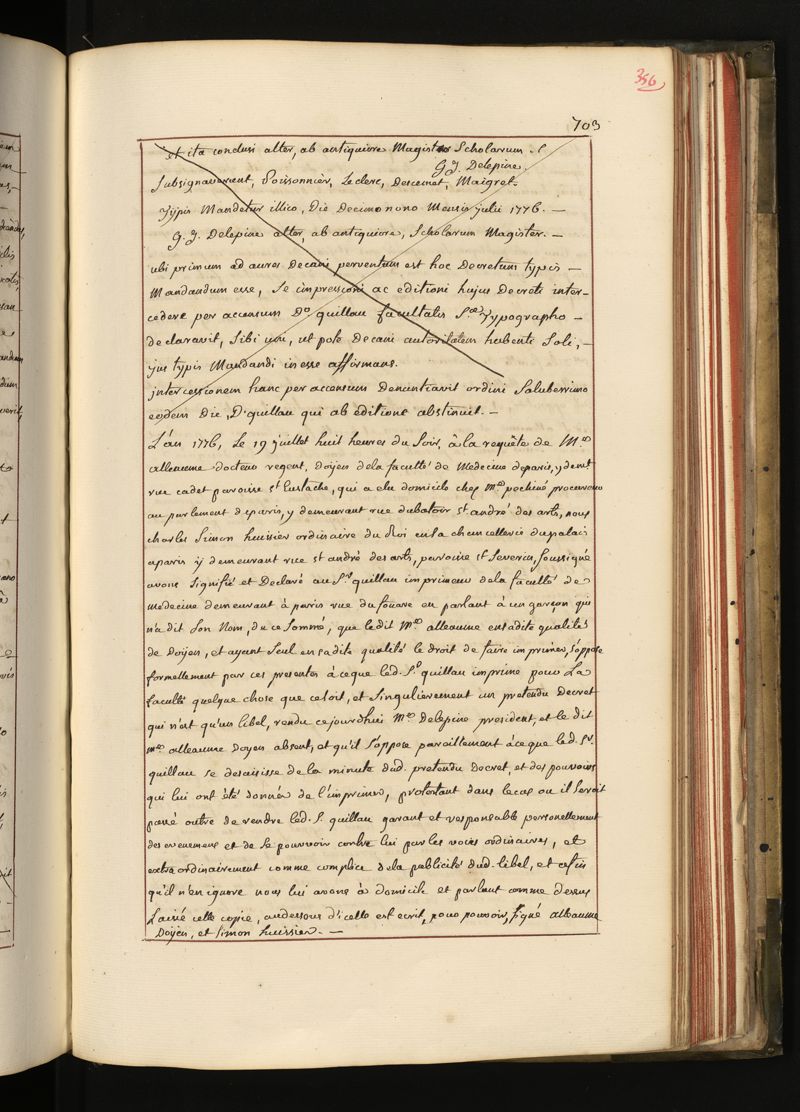 356
703
et ita conclusi alter, ab antiquiore Magister Scholarum.
G. J. Delepine.
Subsignaverunt, Poissonnier, Le clerc, Descemet, Maigret.
Typis Mandetur illico, Die Decimo nono Mensis julii 1776. —
G. J. Delepine alter, ab antiquiore, Scholarum Magister. —
ubi primum ad aures Decani perventum est hoc Decretum typis —
Mandandum esse, Se impressioni ac editioni hujus Decreti inter-
cedere per accensum Do quillau facultatis Typographo —
declaravit, Sibi uni, ut pote Decani autoritatem habenti Soli, —
jus typis Mandandi inesse affirmans.
jntercessionem hanc per accensum Denuntiavit ordini Saluberrimo
eodem Die, D. quillau qui ab editione abstinuit. —
L'an 1776, Le 19 juillet huit heures du Soir, à la requête de Me
alleaume docteur regent, Doyen de la faculté de Medecine de paris, y demt
rue cadet paroisse St Eustache, qui a elu domicile chez Me pochiné procureur
au parlement de paris, y demeurant rue dubatoir St andré des arts, nous
charles Simon huissier ordinaire du Roi en la chancellerie du palais
a paris y demeurant rue St andré des arts, paroisse St Severin, soussigné
avons Signifié et Declaré au Sr quillau imprimeur de la faculté de
Medecine demeurant à paris rue du foüare en parlant à un garçon qui
n'a dit Son Nom, de ce Sommé, que ledit Me alleaume en sadite qualité
de Doyen, et ayant Seul en sadite qualité le droit de faire imprimer, s'oppose
formellement par ces presentes à ce que led. Sr quillau imprime pour La
faculté quelque chose que ce soit, et Singulierement un pretendu Decret
qui n'est qu'un libel, rendu cejourd'hui Me Delepine president, et le dit
Me alleaume Doyen absent, et qu'il s'oppose pareillement à ce que led. Sr.
quillau se desaisisse de la minute dud. pretendu Decret, et des pouvoirs
qui lui ont été donnés de l'imprimer, protestant dans le cas ou il Seroit
passé outre de rendre led. S. quillau garant et responsable personellement
des evenemens et de Se pourvoir contre lui par les voies ordinaires, et
extra ordinairement comme complice de la publicité dud. libel, et afin
qu'il n'en ignore nous lui avons à domicile et parlant comme dessus
Laissé cette copie, au dessous d'icelle est ecrit, pour pouvoir, signé alleaume
Doyen, et Simon huissier. —